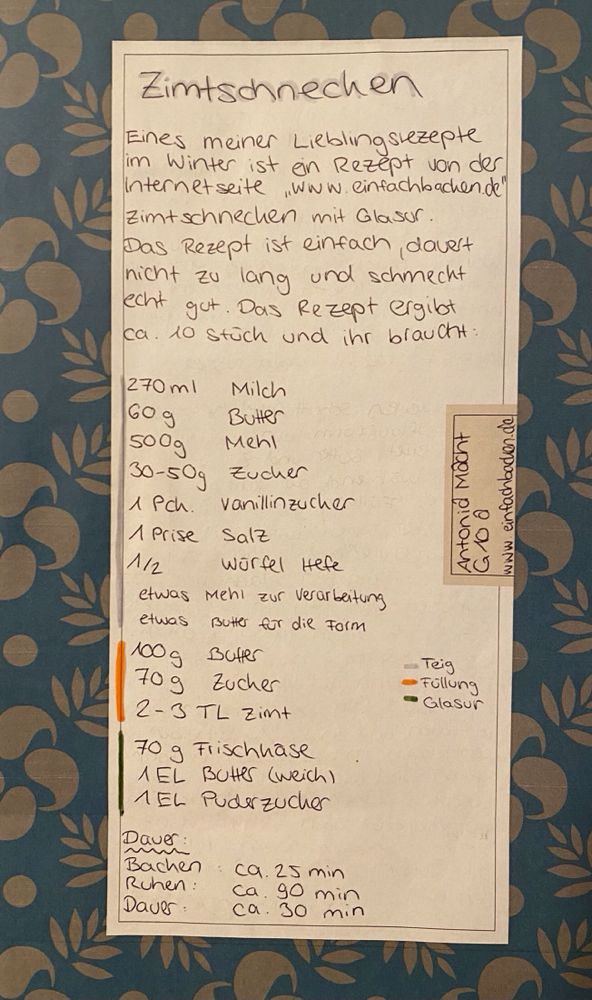 Zimtschnecken
Eines meiner Lieblingsrezepte
im Winter ist ein Rezept von der
Internetseite „www.einfachbacken.de"
Zimtschnecken mit Glasur.
Das Rezept ist einfach, dauert
nicht zu lang und schmeckt
echt gut. Das Rezept ergibt
ca. 10 Stück und ihr braucht:
270ml Milch
60g Butter
500g Mehl
30-50g Zucker
1 Pck. Vanillinzucker
1 Prise Salz
1/2 Würfel Hefe
etwas Mehl zur Verarbeitung
etwas Butter für die Form
100g Butter
70g Zucker
2-3 TL Zimt
70g Frischkäse
1EL Butter (weich)
1EL Puderzucker
Teig
Füllung
Glasur
Dauer:
Backen: ca. 25 min
Ruhen: ca. 90 min
Dauer: ca. 30 min
Macht
www.einfachbacken.de